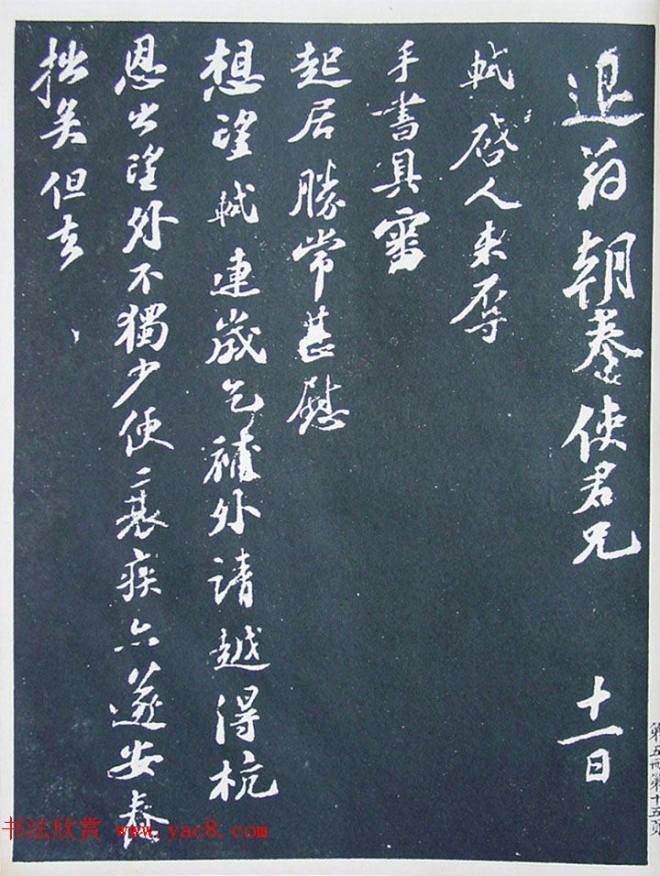 退翁朝奉使君兄 十一日
軾啓人来辱
手書具審
起居勝常甚慰
想望軾連歲乞補外請越得杭
恩出望外不獨少便衰疾亦遂安養
拙矣但去
第五册第十五页
书法欣赏 www.yac8.com